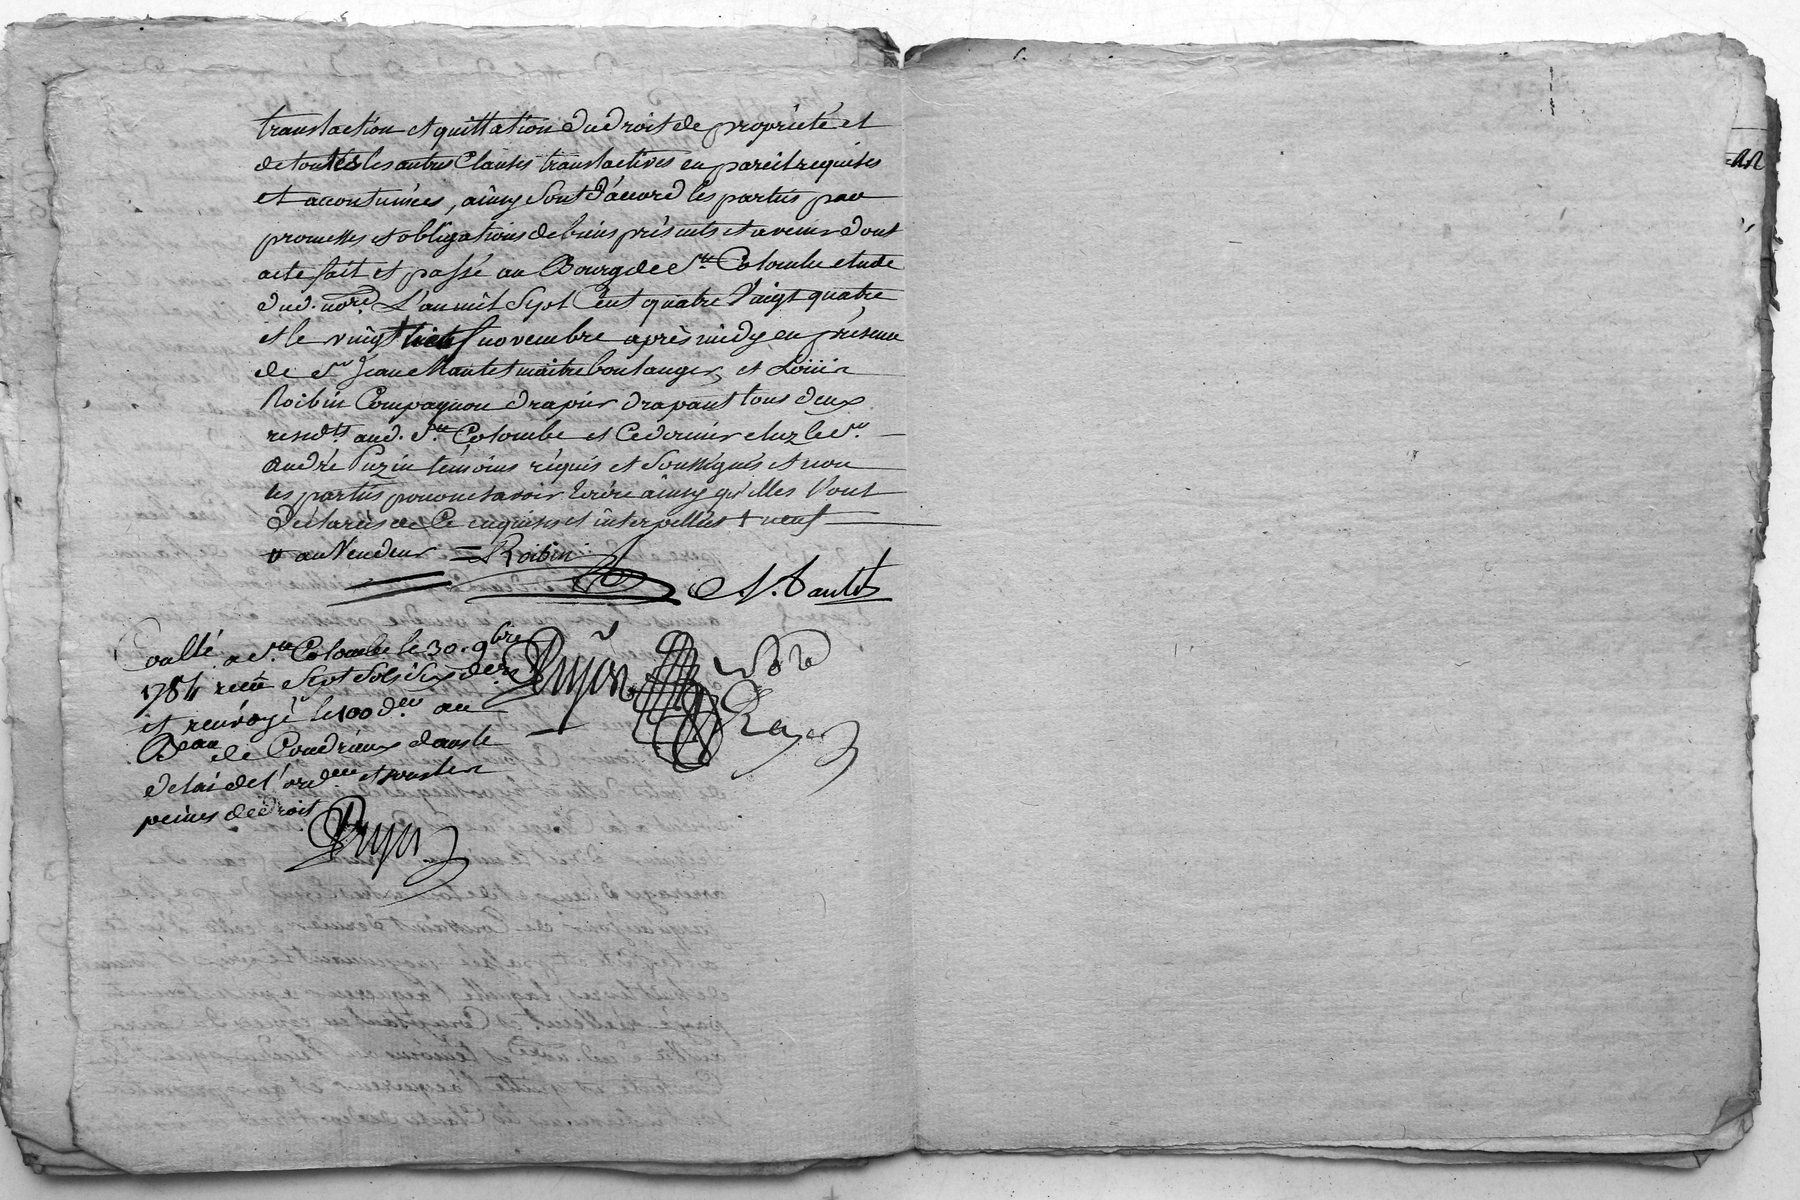 translaction et quittation du droit de propriété et
de toutes les autres Clauses translactives en pareil requises
et accoutumées, ainsy sont d'accord les parties par
promesses et obligations de biens présents et avenir dont
acte fait et passé au Bourg de Ste Colombe etude
dud. nore. L'an mil sept Cent quatre Vingt quatre
et le vingt novembre après midy en présence
de Sr Jean Mantet maitre boulanger, et
Roibin Compagnon drapier drapant tous deux
resndts aud. Ste Colombe et Ce dernier chez le Sr
andré Puzin témoins réquis et soussignés et non
les parties pour ne savoir Ecrire ainsy qu'elles l'ont
Déclarés de Ce enquises et interpellées + neuf
# au Vendeur = Roibin
Mantet
Coullé a Ste Colombe le 30. 9bre
1784 recu sept sols six ders
et renvoyé le 100 der au
Beau de Condrieux dans le
delai de l'ordce et sous les
peines de droit
Nore
Ra